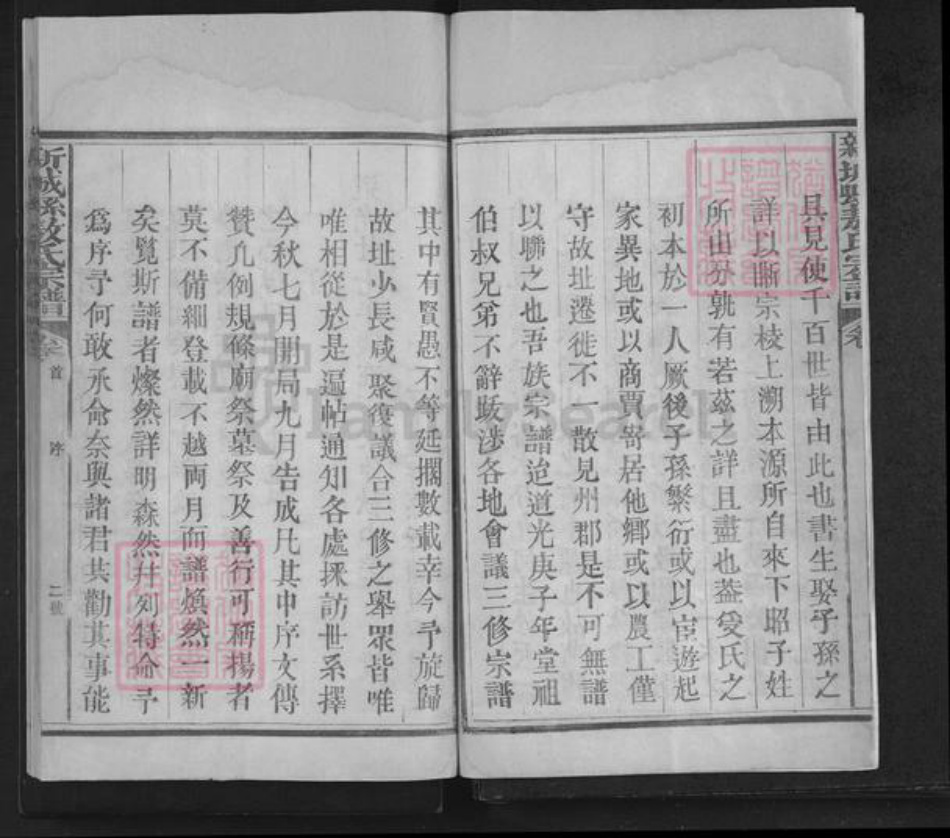 具見使千百世皆由此也書生娶子孫之
詳以晰宗棱上溯本源所自來下昭子姓
所由分孰有若茲之詳且盡也蓋受氏之
初本於一人厥後子孫繁衍或以宦遊起
家異地或以商賈寄居他鄉或以農工僅
守故址遷徙不一散見州郡是不可無譜
以聯之也吾族宗譜迨道光庚子年堂祖
伯叔兄弟不辭跋涉各地會議三修宗譜
其中有賢愚不等延擱數載幸今予旋歸
故址少長咸聚復議合三修之舉眾皆唯
唯相從於是遍帖通知各處採訪世系擇
今秋七月開局九月告成凡其中序文傳
贊凡例規條廟祭墓祭及善行可稱揚者
莫不備細登載不越兩月而譜煥然一新
矣覽斯譜者燦然詳明森然井列特命予
為序予何敢承命奈與諸君共勷其事能
新城縣敖氏宗譜 卷首 序 二號
FamilySearch